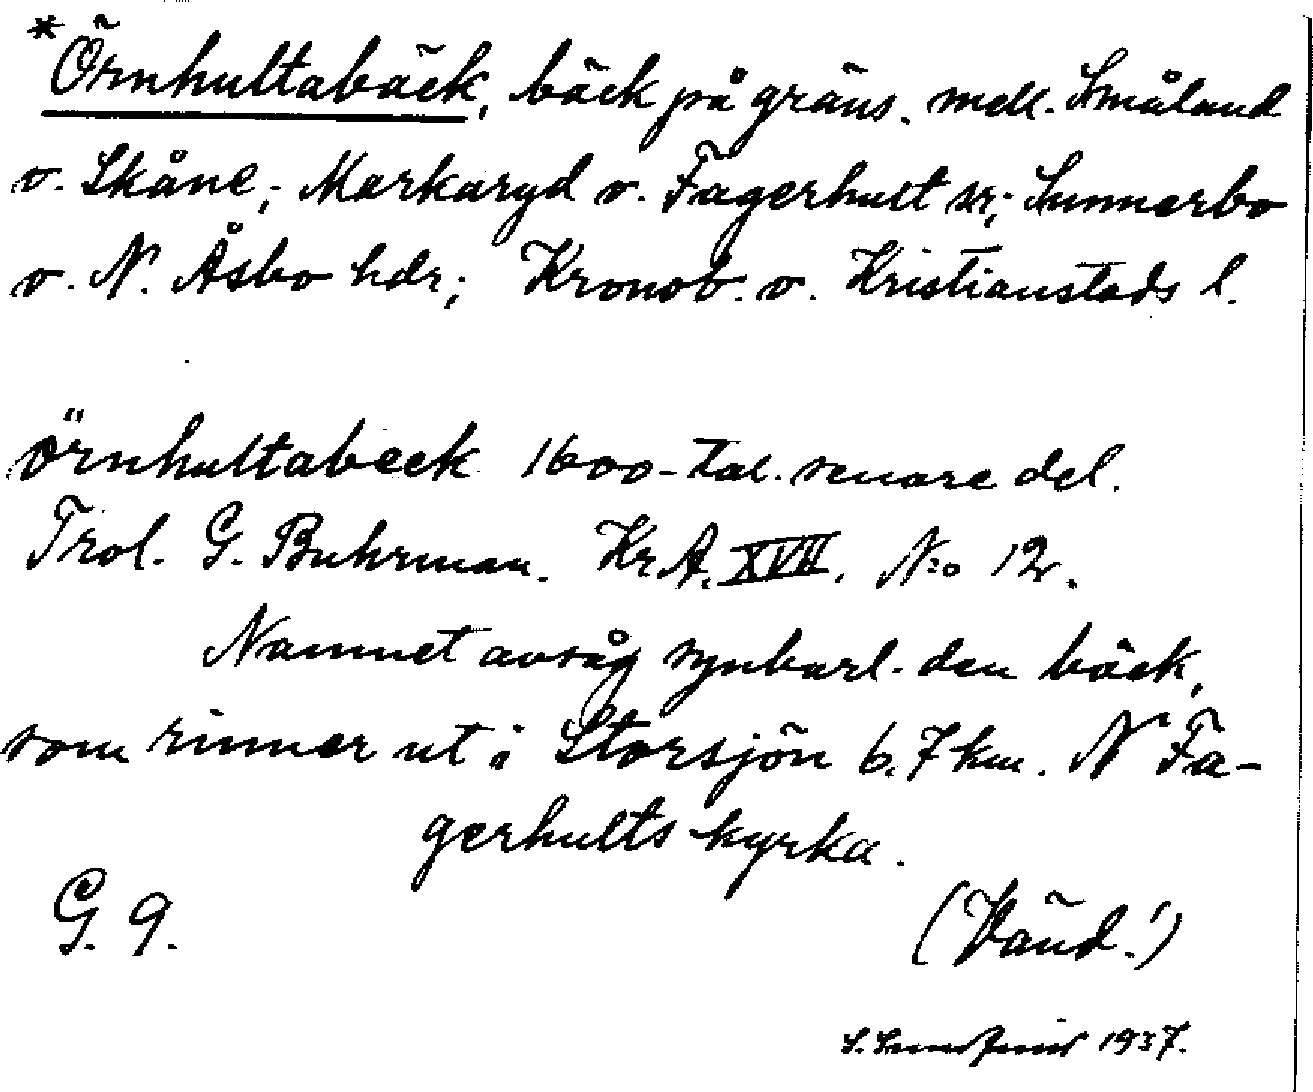 *Örnhultabäck, bäck på gräns. mell. Småland
o. Skåne; Markaryd o. Fagerhult sr; Sunnerbo
o. N. Åsbo hdr; Kronob. o. Kristianstads l.
örnhultabeck 1600-tal. senare del.
Trol. G. Buhrman. Kr.A. XVII. N:o 12.
Namnet avsåg synbarl. den bäck,
som rinner ut i Storsjön 6,7 km. N Fa-
gerhults kyrka.
G. 9.
(Vänd!)
1937.